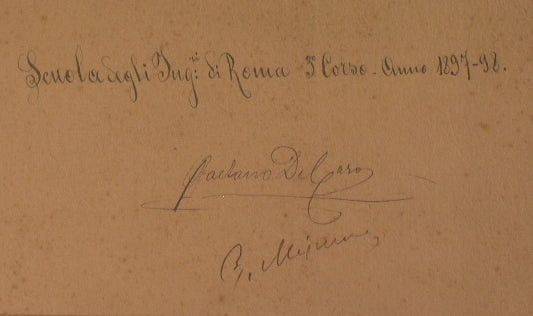 Scuola degli Ing.ri di Roma 3º Corso - Anno 1897-98.
Gaetano Del Caro